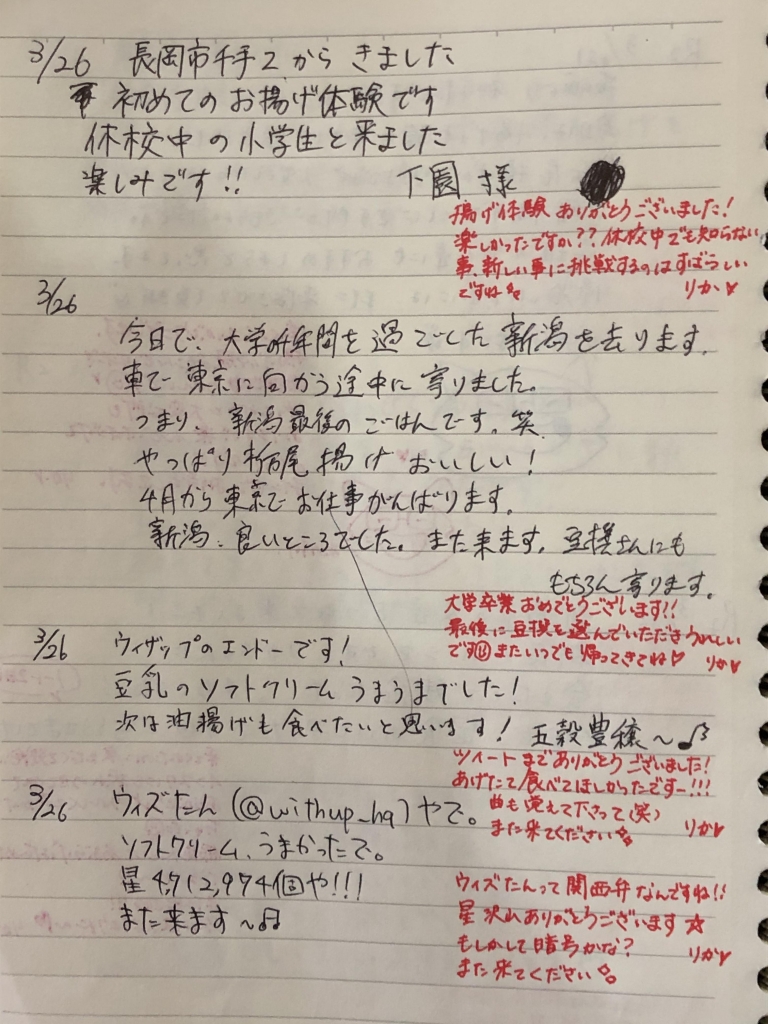 3/26 長岡市千手2からきました
初めてのお揚げ体験です
休校中の小学生と来ました
楽しみです!!
下園様
揚げ体験ありがとうございました!
楽しかったですか??休校中でも知らない
事、新しい事に挑戦するのはすばらしい
ですね
りか♡
3/26
今日で、大学の4年間を過ごした新潟を去ります。
車で東京に向かう途中に寄りました。
つまり、新潟最後のごはんです。笑
やっぱり栃尾揚げおいしい!
4月から東京でお仕事がんばります。
新潟、良いところでした。また来ます。豆撰さんにも
もちろん寄ります。
大学卒業おめでとうございます!!
最後に豆撰を選んでいただきうれしい
です またいつでも帰ってきてね♡
りか♡
3/26 ウィザップのエンドーです!
豆乳のソフトクリームうまうまでした!
次は油揚げも食べたいと思います! 五穀豊穣〜♪
ツイートまでありがとうございました!
あげたて食べてほしかったですー!!!
曲も覚えて下さって(笑)
また来てください
りか♡
3/26 ウィズたん(@withup_hq)やで。
ソフトクリーム、うまかったで。
星4,912,974個や!!!
また来ます〜♫
ウィズたんって関西弁なんですね!!
星沢山ありがとうございます☆
もしかして暗号かな?
りか♡
また来てください